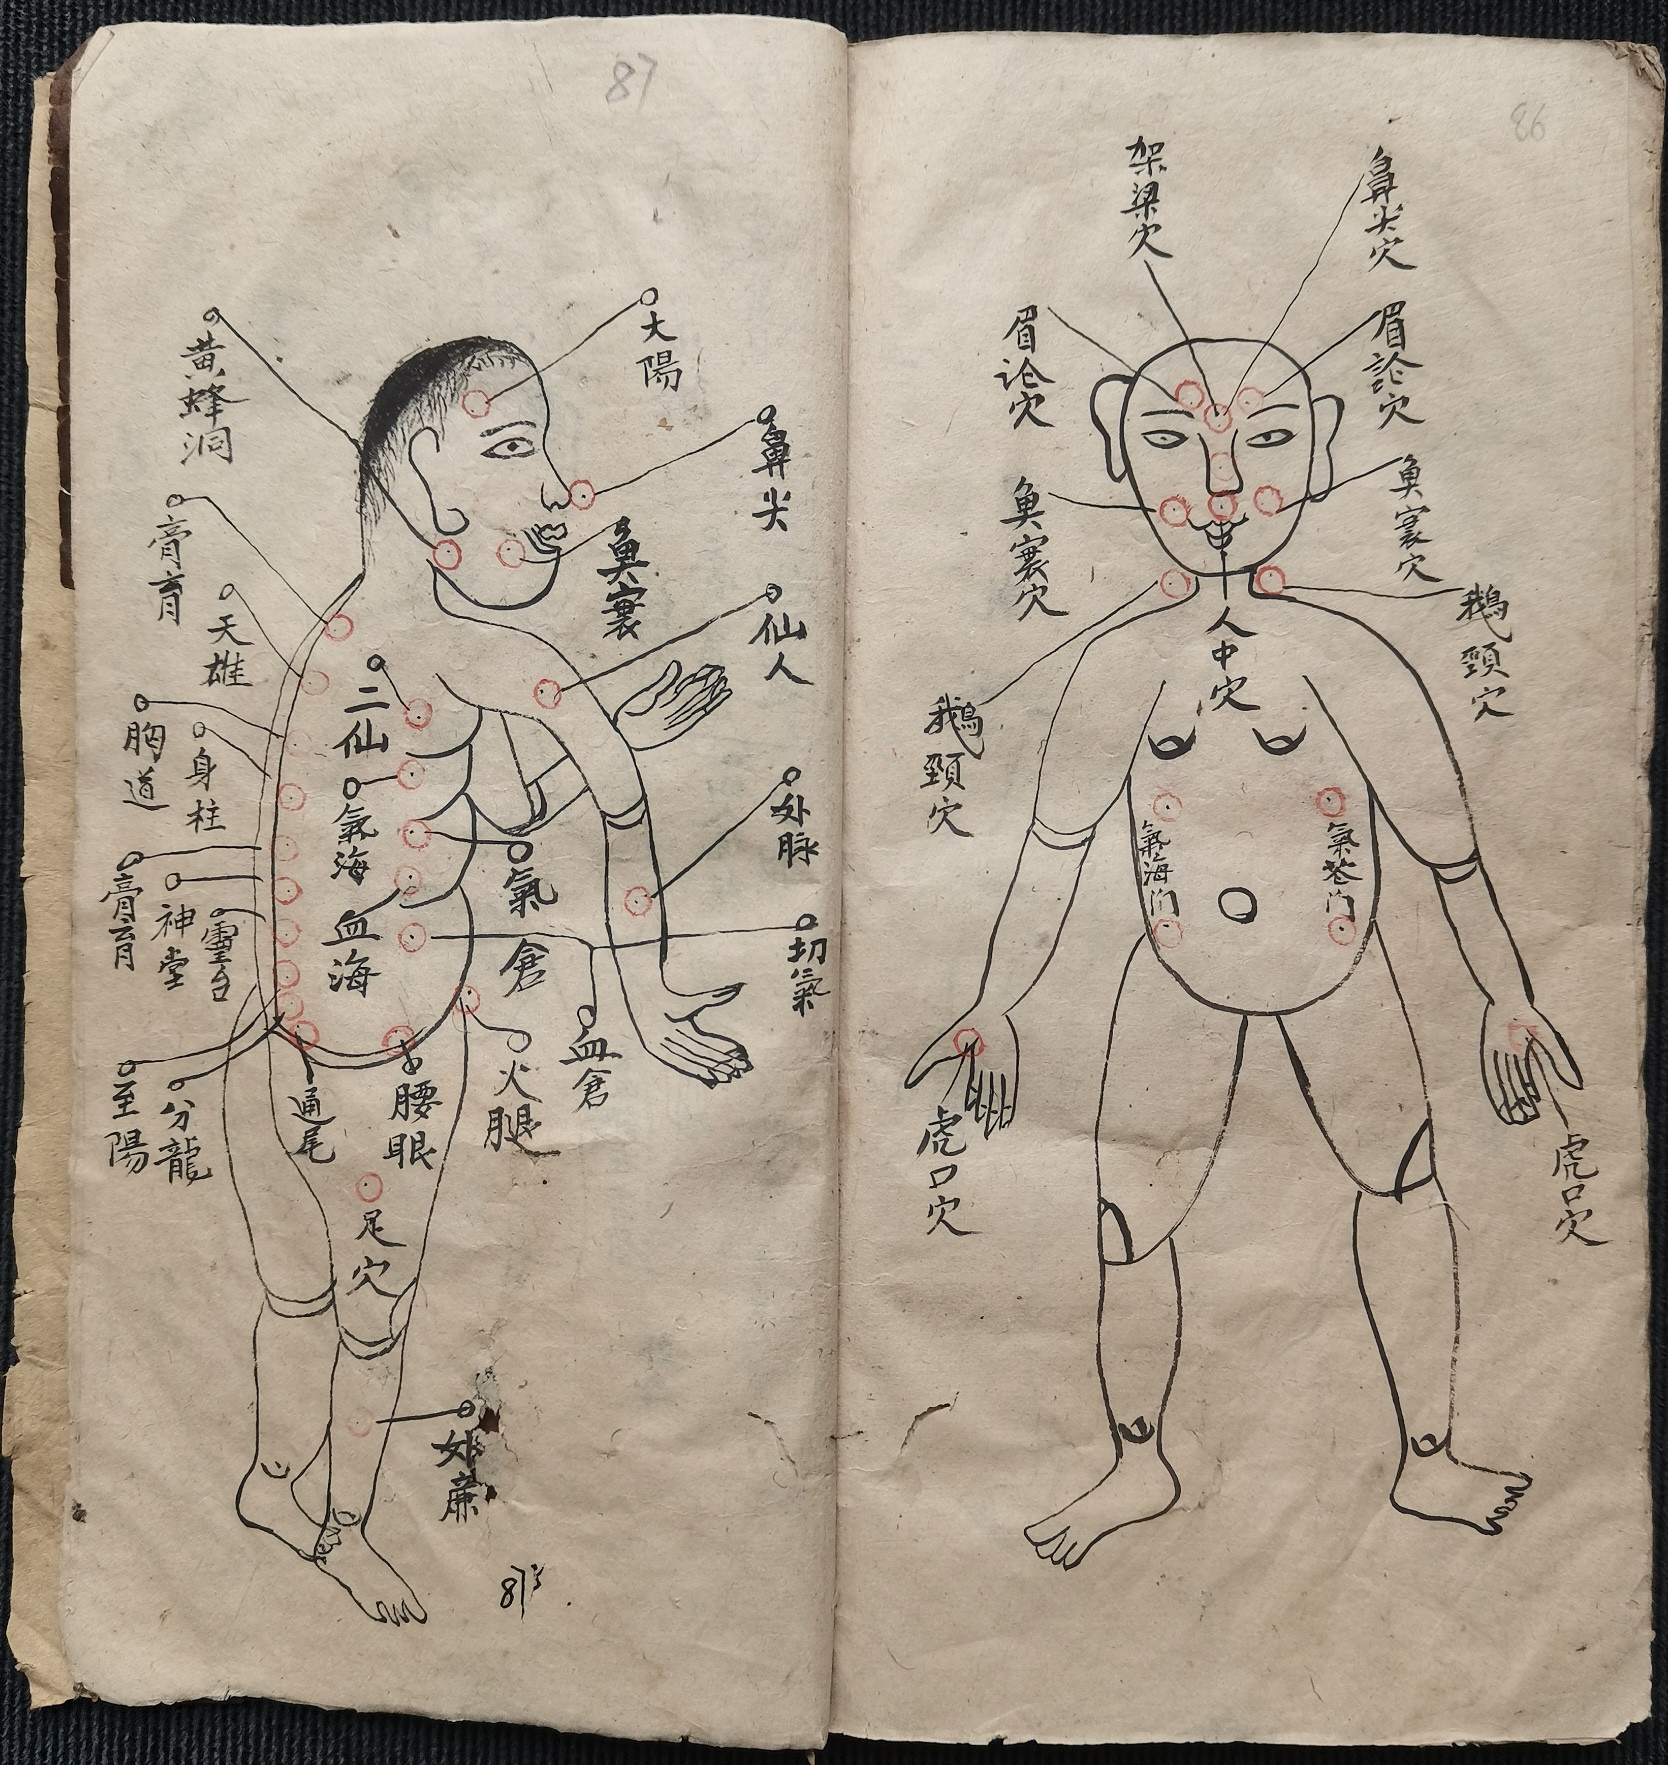 86
鼻尖穴
架梁穴
眉論穴
眉论穴
鵝頸穴
人中穴
鵝頸穴
氣海门
虎口穴
虎口穴
87
大陽
鼻尖
仙人
外脉
切氣
氣倉
血倉
火腿
二仙
氣海
血海
腰眼
通尾
足穴
黃蜂洞
膏育
天雄
胸道
身柱
膏育
神堂
靈台
至陽
分龍
87